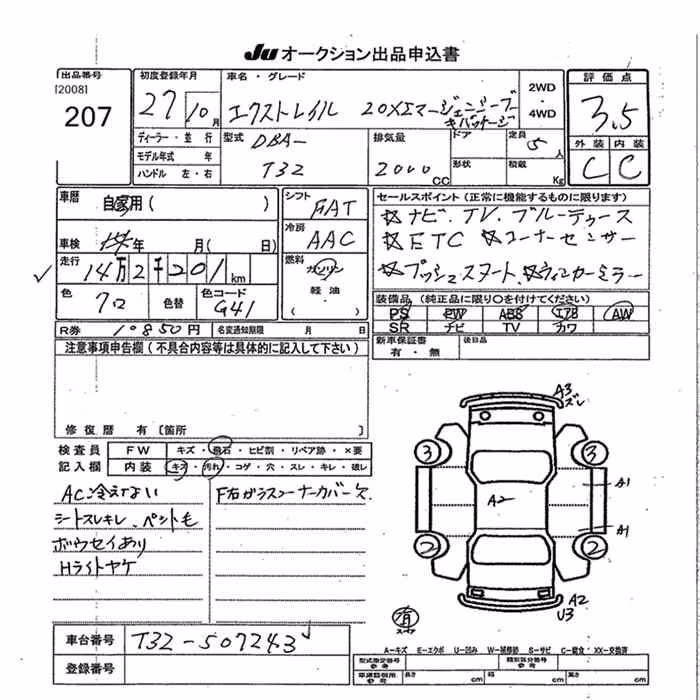 JU オークション出品申込書
出品番号
[2008]
207
初度登録年月
27年10月
車名・グレード
エクストレイル 20X エマージェンシーブレーキパッケージ
2WD
・
4WD
評価点
3.5
外装 内装
C C
ディーラー・並行
モデル年式 年
ハンドル 左・右
型式 DBA-
T32
排気量
2000 cc
ドア
形状
定員 5人
積載 Kg
車歴 自家用( )
車検 年 月( 日)
走行 14万2千201 km
色 クロ 色替 色コード G41
シフト FAT
冷房 AAC
燃料 ガソリン
軽油・
( )
セールスポイント(正常に機能するものに限ります)
☆ナビ.TV.ブルートゥース
☆ETC ☆コーナーセンサー
☆プッシュスタート、☆ウィンカーミラー
装備品(純正品に限り○を付けてください)
PS PW ABS エアB AW
SR ナビ TV カワ
新車保証書 有・無 後日品
R券 10850円 名変通知期限 月 日
注意事項申告欄(不具合内容等は具体的に記入して下さい)
修復歴 有〔箇所 〕
検査員記入欄
FW キズ・飛石・ヒビ割・リペア跡・×要
内装 キズ・汚れ・コゲ・穴・スレ・キレ・破レ
AC冷えない
シートスレキレ、ペット毛
ボウセイあり
Hライトヤケ
F右ガラスコーナーカバー欠
A3
ズレ
3 3
A2
A1
A1
2 2
A2
U3
有
スペア
車台番号 T32-507243
登録番号
A-キズ E-エクボ U-凹み W-補修跡 S-サビ C-腐食 XX-交換済
型式指定番号 参考
類別区分番号 参考
車両諸元用 参考
長さ cm 幅 cm 高さ cm